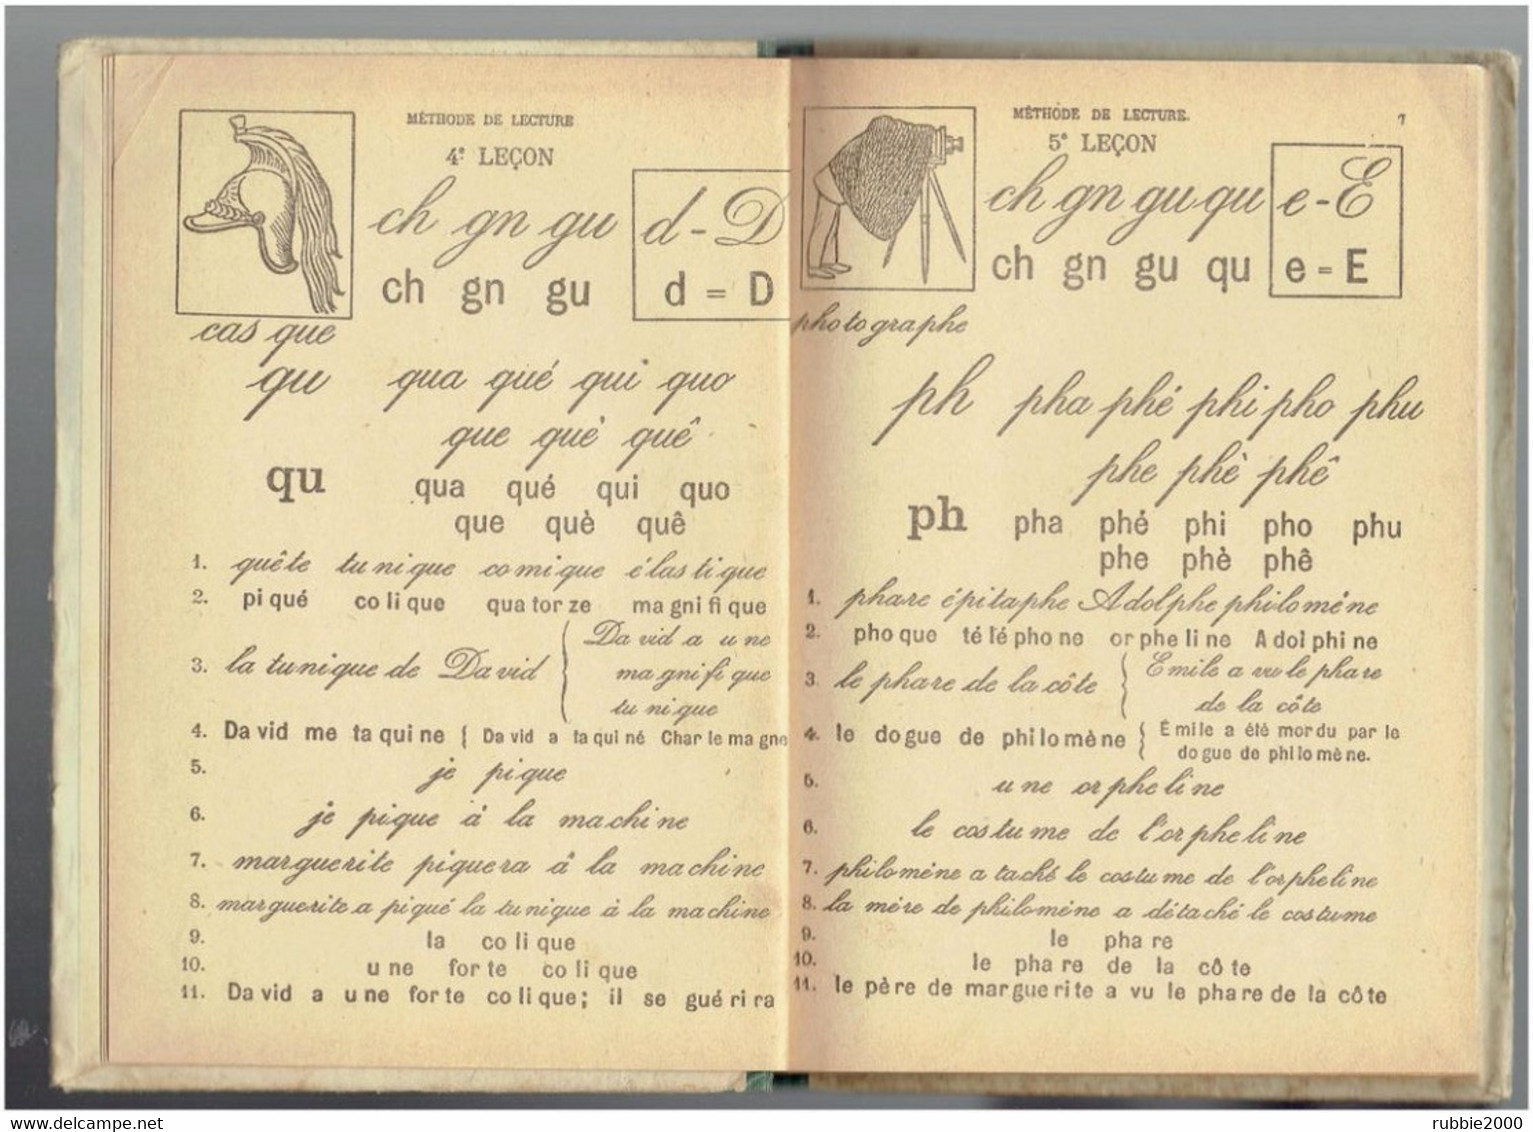 MÉTHODE DE LECTURE
4e LEÇON
ch gn gu
d - D
ch gn gu
d = D
cas que
qu qua qué qui quo
que què quê
qu qua qué qui quo
que què quê
1. quête tu ni que co mi que é las ti que
2. pi qué co li que qua tor ze ma gni fi que
3. la tu ni que de Da vid { Da vid a u ne
ma gni fi que
tu ni que
4. Da vid me ta qui ne { Da vid a ta qui né Char le ma gne
5. je pi que
6. je pi que à la ma chi ne
7. mar gue ri te pi que ra à la ma chi ne
8. mar gue ri te a pi qué la tu ni que à la ma chi ne
9. la co li que
10. u ne for te co li que
11. Da vid a u ne for te co li que ; il se gué ri ra
MÉTHODE DE LECTURE. 7
5e LEÇON
ch gn gu qu
e - E
ch gn gu qu
e = E
pho to gra phe
ph pha phé phi pho phu
phe phè phê
ph pha phé phi pho phu
phe phè phê
1. pha re é pi ta phe A dol phe phi lo mè ne
2. pho que té lé pho ne or phe li ne A dol phi ne
3. le pha re de la cô te { E mi le a vu le pha re
de la cô te
4. le do gue de phi lo mè ne { É mi le a é té mor du par le
do gue de phi lo mè ne.
5. u ne or phe li ne
6. le cos tu me de l'or phe li ne
7. phi lo mè ne a ta ché le cos tu me de l'or phe li ne
8. la mè re de phi lo mè ne a dé ta ché le cos tu me
9. le pha re
10. le pha re de la cô te
11. le pè re de mar gue ri te a vu le pha re de la cô te
rubbie2000